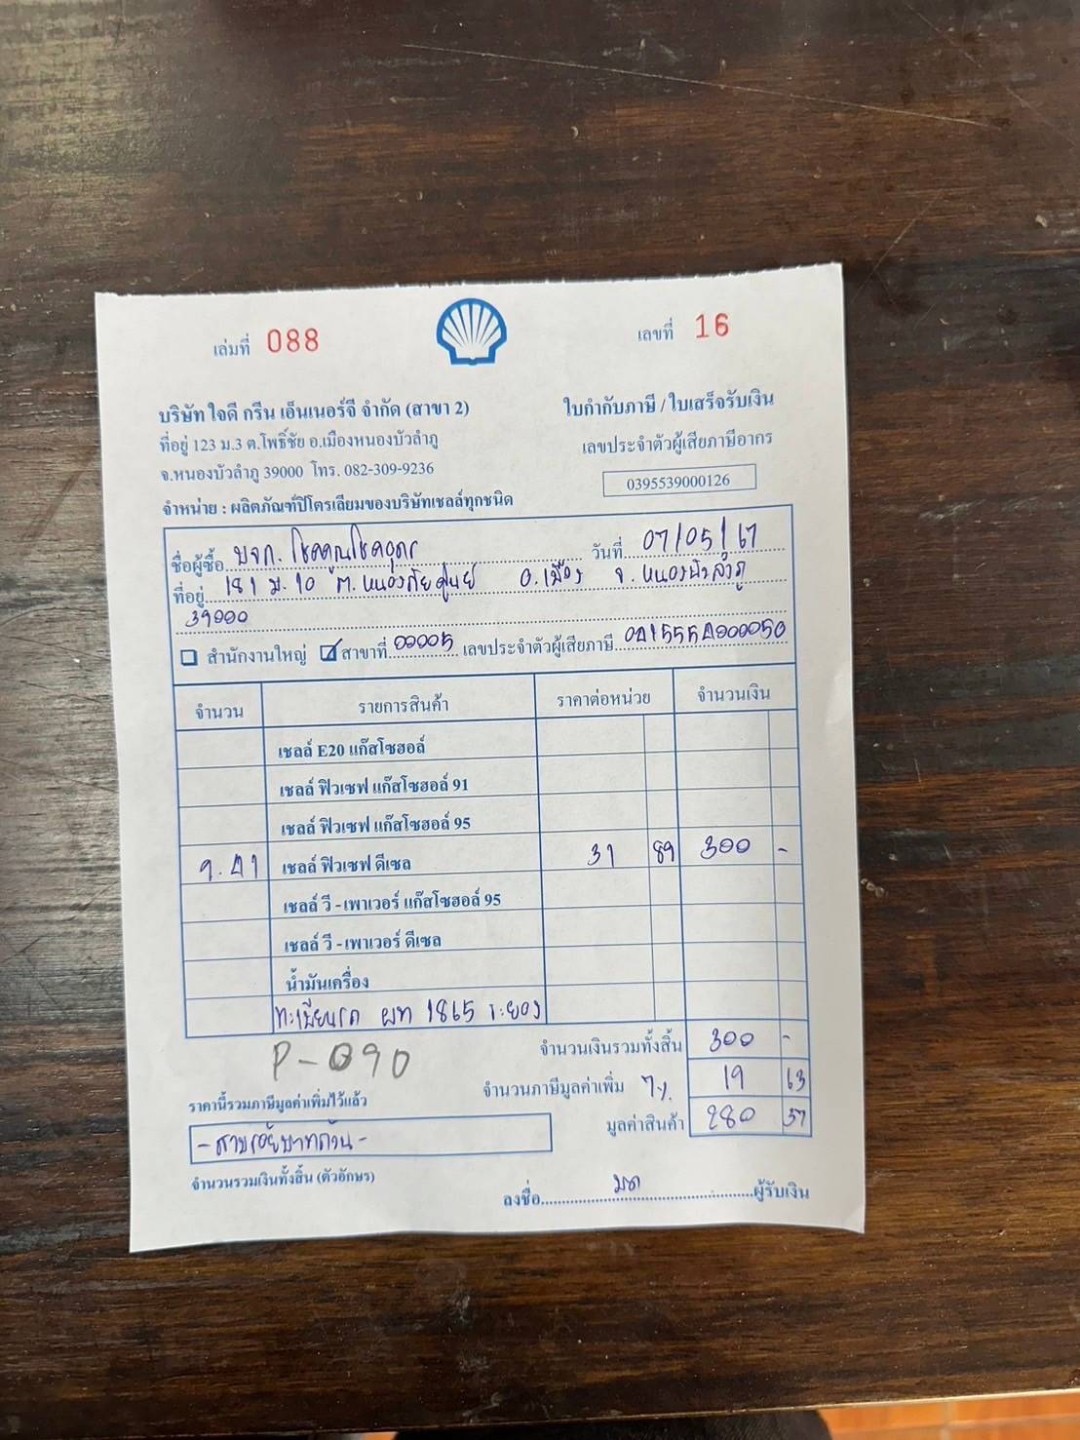 เล่มที่ 088
เลขที่ 16
บริษัท ใจดี กรีน เอ็นเนอร์จี จำกัด (สาขา 2)
ใบกำกับภาษี / ใบเสร็จรับเงิน
ที่อยู่ 123 ม.3 ต.โพธิ์ชัย อ.เมืองหนองบัวลำภู
เลขประจำตัวผู้เสียภาษีอากร
จ.หนองบัวลำภู 39000 โทร. 082-309-9236
0395539000126
จำหน่าย : ผลิตภัณฑ์ปิโตรเลียมของบริษัทเชลล์ทุกชนิด
ชื่อผู้ซื้อ บจก. โชคคูณโชคอุดร วันที่ 07/05/67
ที่อยู่ 181 ม.10 ต.หนองภัยศูนย์ อ.เมือง จ.หนองบัวลำภู
39000
สำนักงานใหญ่ สาขาที่ 00005 เลขประจำตัวผู้เสียภาษี 0415554000050
จำนวน รายการสินค้า ราคาต่อหน่วย จำนวนเงิน
เชลล์ E20 แก๊สโซฮอล์
เชลล์ ฟิวเซฟ แก๊สโซฮอล์ 91
เชลล์ ฟิวเซฟ แก๊สโซฮอล์ 95
9.41 เชลล์ ฟิวเซฟ ดีเซล 31 89 300 -
เชลล์ วี - เพาเวอร์ แก๊สโซฮอล์ 95
เชลล์ วี - เพาเวอร์ ดีเซล
น้ำมันเครื่อง
ทะเบียนรถ ผท 1865 ระยอง
จำนวนเงินรวมทั้งสิ้น 300 -
P-090
จำนวนภาษีมูลค่าเพิ่ม 7% 19 63
ราคานี้รวมภาษีมูลค่าเพิ่มไว้แล้ว
มูลค่าสินค้า 280 37
- สามร้อยบาทถ้วน -
จำนวนรวมเงินทั้งสิ้น (ตัวอักษร)
ลงชื่อ มด ผู้รับเงิน